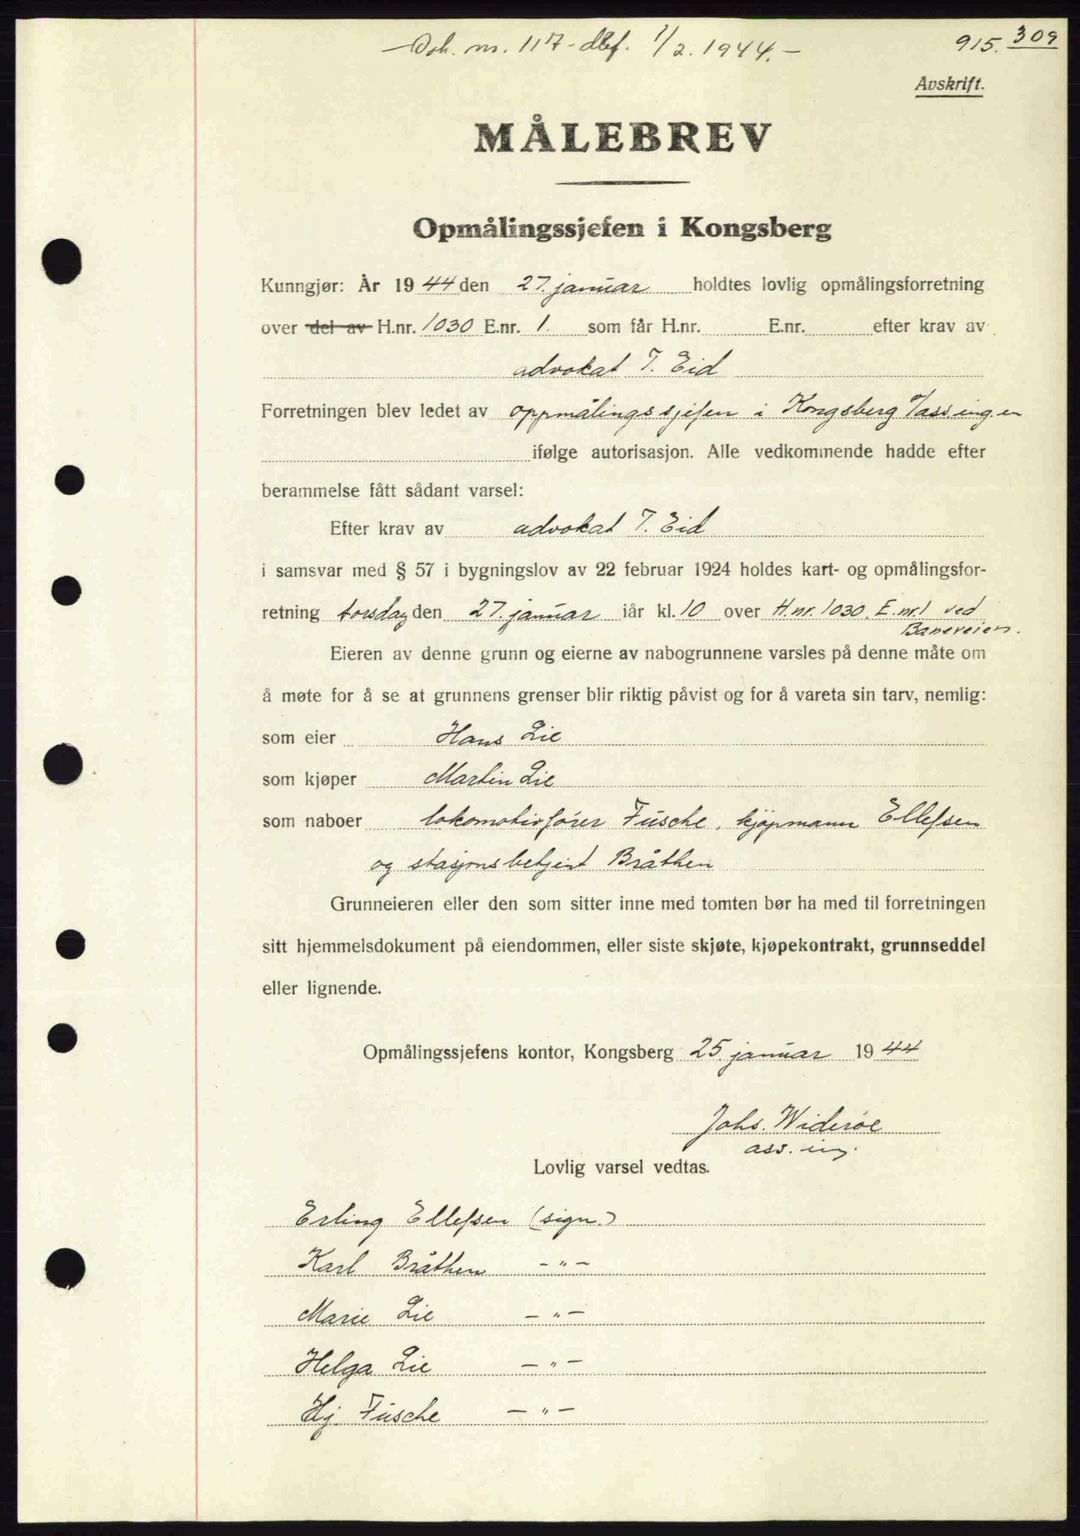 Dok. nr. 117 - dbf. 1/2. 1944. -
915. 309
Avskrift.
MÅLEBREV
Opmålingssjefen i Kongsberg
Kunngjør: År 1944 den 27. januar holdtes lovlig opmålingsforretning
over del av H.nr. 1030 E.nr. 1. som får H.nr. E.nr. efter krav av
advokat T. Eid
Forretningen blev ledet av oppmålingssjefen i Kongsberg v/ass.ingen
ifølge autorisasjon. Alle vedkommende hadde efter
berammelse fått sådant varsel:
Efter krav av advokat T. Eid
i samsvar med § 57 i bygningslov av 22 februar 1924 holdes kart- og opmålingsfor-
retning torsdag den 27. januar iår kl. 10 over H.nr. 1030, E.nr. 1 ved
Baneveien.
Eieren av denne grunn og eierne av nabogrunnene varsles på denne måte om
å møte for å se at grunnens grenser blir riktig påvist og for å vareta sin tarv, nemlig:
som eier Hans Lie
som kjøper Martin Lie
som naboer lokomotivfører Füsche, kjøpmann Ellefsen
og stasjonsbetjent Bråthen
Grunneieren eller den som sitter inne med tomten bør ha med til forretningen
sitt hjemmelsdokument på eiendommen, eller siste skjøte, kjøpekontrakt, grunnseddel
eller lignende.
Opmålingssjefens kontor, Kongsberg 25. januar 1944
Johs. Widerøe
ass. ing.
Lovlig varsel vedtas.
Erling Ellefsen (sign.)
Karl Bråthen - " -
Marie Lie - " -
Helga Lie - " -
Hj. Füsche - " -